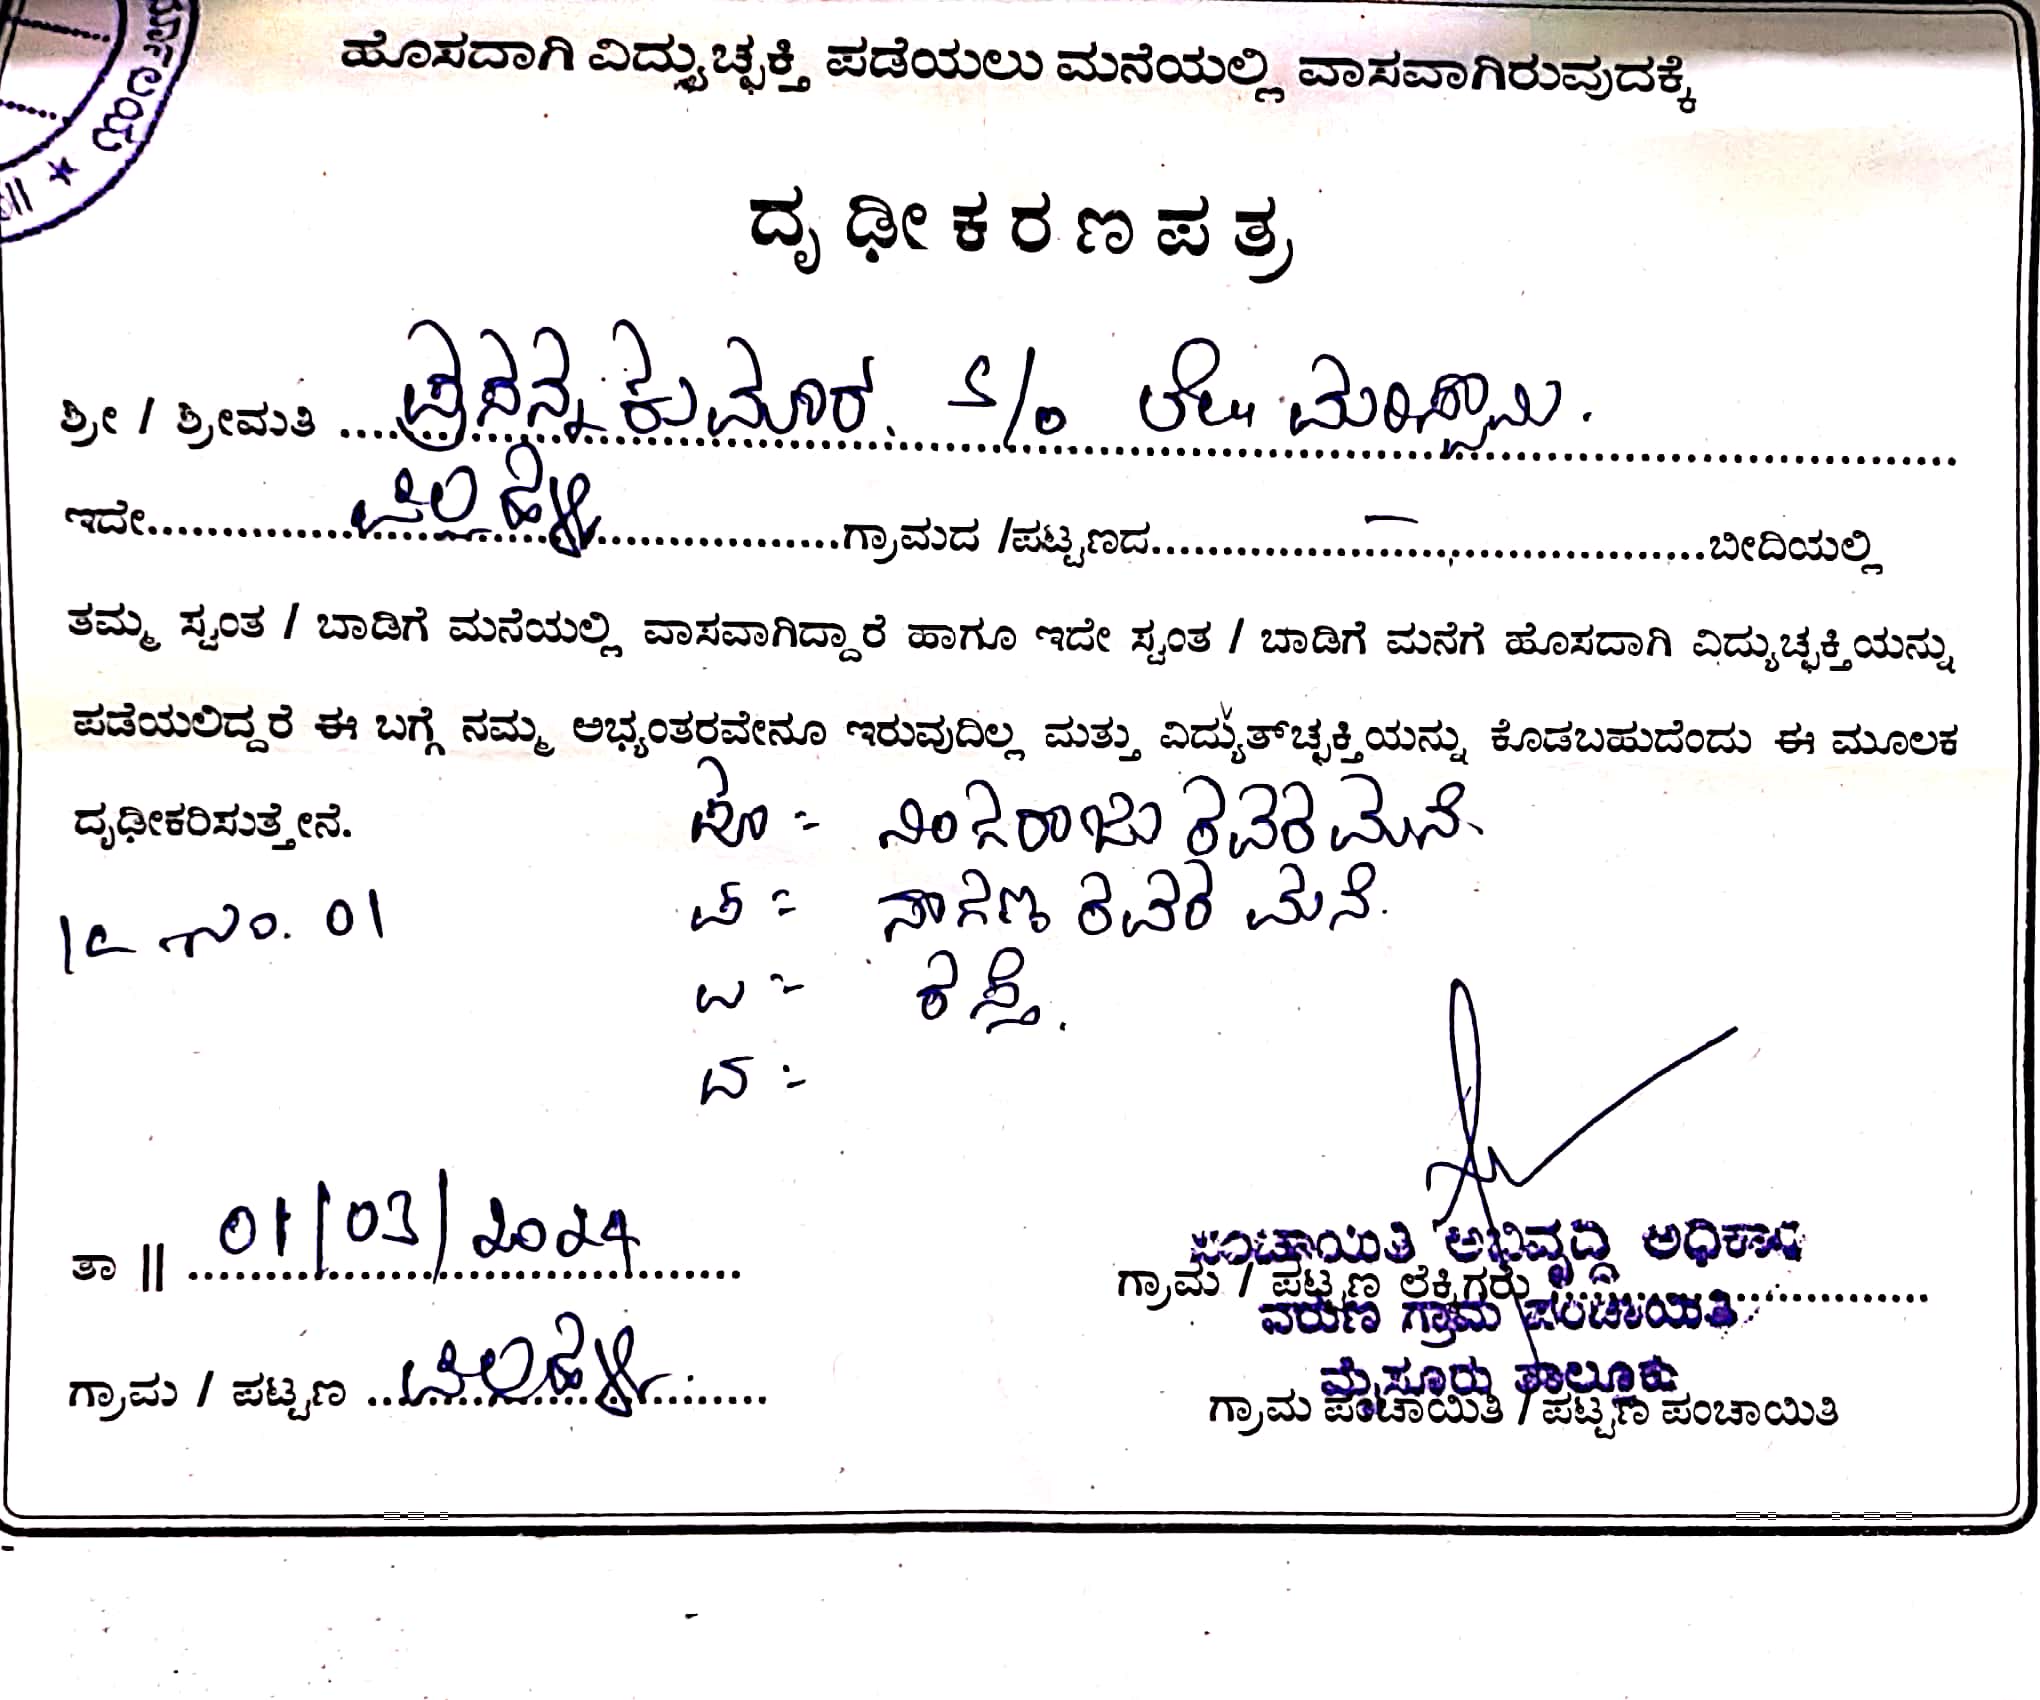 ಹೊಸದಾಗಿ ವಿದ್ಯುಚ್ಛಕ್ತಿ ಪಡೆಯಲು ಮನೆಯಲ್ಲಿ ವಾಸವಾಗಿರುವುದಕ್ಕೆ
ದೃಢೀಕರಣಪತ್ರ
ಶ್ರೀ / ಶ್ರೀಮತಿ ಪ್ರಸನ್ನ ಕುಮಾರ. S/o ಲೇ॥
ಇದೇ ಗ್ರಾಮದ /ಪಟ್ಟಣದ — ಬೀದಿಯಲ್ಲಿ
ತಮ್ಮ ಸ್ವಂತ / ಬಾಡಿಗೆ ಮನೆಯಲ್ಲಿ ವಾಸವಾಗಿದ್ದಾರೆ ಹಾಗೂ ಇದೇ ಸ್ವಂತ / ಬಾಡಿಗೆ ಮನೆಗೆ ಹೊಸದಾಗಿ ವಿದ್ಯುಚ್ಛಕ್ತಿಯನ್ನು
ಪಡೆಯಲಿದ್ದರೆ ಈ ಬಗ್ಗೆ ನಮ್ಮ ಅಭ್ಯಂತರವೇನೂ ಇರುವುದಿಲ್ಲ ಮತ್ತು ವಿದ್ಯುತ್‌ಚ್ಛಕ್ತಿಯನ್ನು ಕೊಡಬಹುದೆಂದು ಈ ಮೂಲಕ
ದೃಢೀಕರಿಸುತ್ತೇನೆ.
ಪೂ = ನಿಂಗರಾಜು ರವರ ಮನೆ.
ಪ = ನಾಗಣ್ಣ ರವರ ಮನೆ.
ಉ = ರಸ್ತೆ.
ದ =
ನಂ. 01
ತಾ || 01/03/2024
ಪಂಚಾಯಿತಿ ಅಭಿವೃದ್ಧಿ ಅಧಿಕಾರಿ
ಗ್ರಾಮ / ಪಟ್ಟಣ ಲೆಕ್ಕಿಗರು
ವರುಣ ಗ್ರಾಮ ಪಂಚಾಯಿತಿ
ಮೈಸೂರು ತಾಲ್ಲೂಕು
ಗ್ರಾಮ / ಪಟ್ಟಣ
ಗ್ರಾಮ ಪಂಚಾಯಿತಿ / ಪಟ್ಟಣ ಪಂಚಾಯಿತಿ